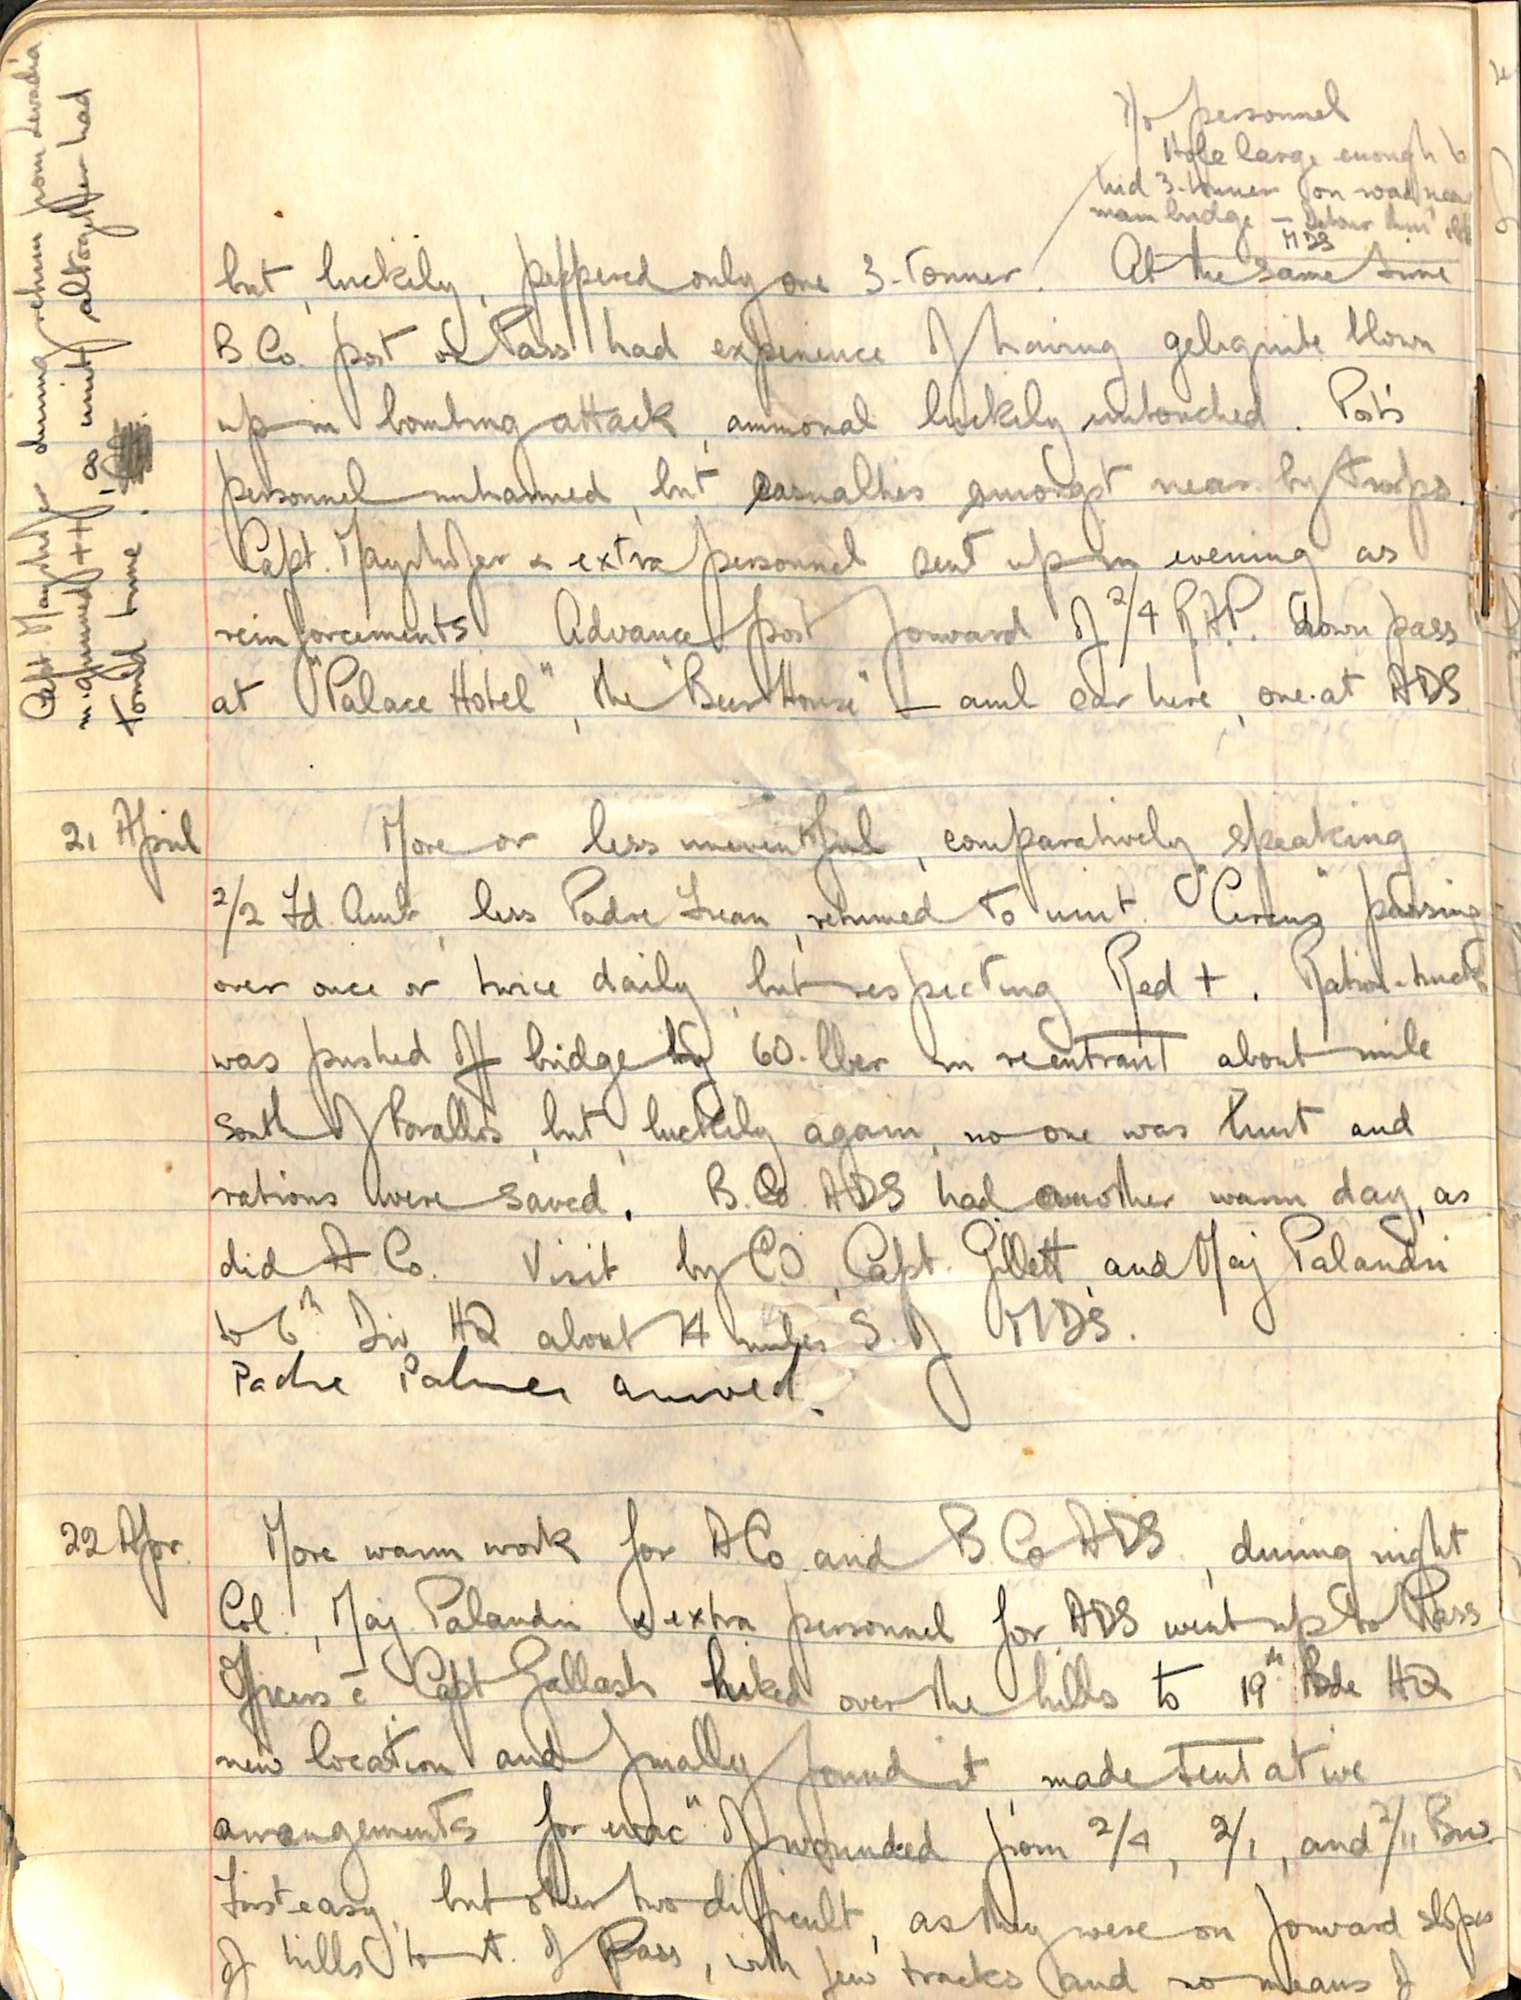 No personnel
Hole large enough to
hid 3-tonner on road near
main bridge — detour thru'
MDS
but, luckily, peppered only one 3-tonner. At the same time
B Co. post on Pass had experience of having gelignite blown
up in bombing attack, ammonal luckily untouched. Post's
personnel unharmed, but casualties amongst near-by troops.
Capt. Mayrhofer & extra personnel sent up in evening as
reinforcements. Advance post forward of 2/4 R.A.P. down pass
at "Palace Hotel", the "Beer House" — aml car here, one at ADS
Capt. Mayrhofer during return from Levadia
m-gunned ++, so unit altogether had
torrid time.
21 April
More or less uneventful, comparatively speaking
2/2 Fd. Amb, less Padre, returned to unit. "Circus" passing
over once or twice daily, but respecting Red +. Ration-truck
was pushed off bridge by 60-lber in reentrant about mile
south of Bralos, but, luckily again, no one was hurt and
rations were saved. B. Co. ADS had another warm day, as
did A Co. Visit by CO, Capt. Gillett, and Maj Palandri
to 6th Div HQ about 14 miles S. of MDS.
Padre Palmer arrived.
22 Apr.
More warm work for A Co. and B. Co ADS, during night
Col., Maj. Palandri & extra personnel for ADS went up to Pass
Officers c̄ Capt Gallash hiked over the hills to 19th Bde HQ
new location and finally found it, made tentative
arrangements for evac" of wounded from 2/4, 2/1, and 2/11 Bns.
First easy, but other two difficult, as they were on forward slopes
of hills to rt. of Pass, with few tracks and no means of